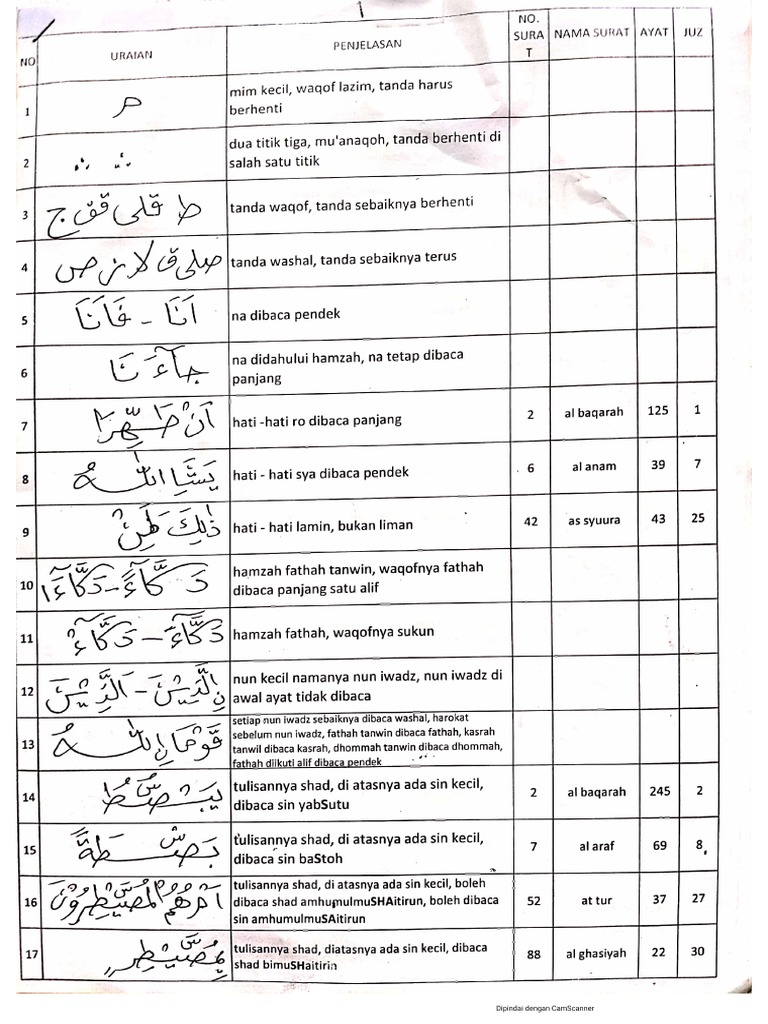 1
NO
URAIAN
PENJELASAN
NO.
SURA
T
NAMA SURAT
AYAT
JUZ
1
مـ
mim kecil, waqof lazim, tanda harus
berhenti
2
∴ ∴
dua titik tiga, mu'anaqoh, tanda berhenti di
salah satu titik
3
ط قلى قف ج
tanda waqof, tanda sebaiknya berhenti
4
صلى ق لا ز ص
tanda washal, tanda sebaiknya terus
5
اَنَا - فَاَنَا
na dibaca pendek
6
جَآءَنَا
na didahului hamzah, na tetap dibaca
panjang
7
اَنْ طَهِّرَا
hati -hati ro dibaca panjang
2
al baqarah
125
1
8
يَشَاِ اللّٰهُ
hati - hati sya dibaca pendek
6
al anam
39
7
9
ذٰلِكَ لَمِنْ
hati - hati lamin, bukan liman
42
as syuura
43
25
10
دَكَّآءً - دَكَّآءَا
hamzah fathah tanwin, waqofnya fathah
dibaca panjang satu alif
11
دَكَّآءَ - دَكَّآءْ
hamzah fathah, waqofnya sukun
12
نِ الَّذِيْنَ - اَلَّذِيْنَ
nun kecil namanya nun iwadz, nun iwadz di
awal ayat tidak dibaca
13
setiap nun iwadz sebaiknya dibaca washal, harokat
sebelum nun iwadz, fathah tanwin dibaca fathah, kasrah
tanwil dibaca kasrah, dhommah tanwin dibaca dhommah,
fathah diikuti alif dibaca pendek
14
يَبْصُۜطُ
tulisannya shad, di atasnya ada sin kecil,
dibaca sin yabSutu
2
al baqarah
245
2
15
بَصْۜطَةً
tulisannya shad, di atasnya ada sin kecil,
dibaca sin baStoh
7
al araf
69
8
16
اَمْ هُمُ الْمُصَۜيْطِرُوْنَ
tulisannya shad, di atasnya ada sin kecil, boleh
dibaca shad amhumulmuSHAitirun, boleh dibaca
sin amhumulmuSAitirun
52
at tur
37
27
17
بِمُصَۜيْطِرٍ
tulisannya shad, diatasnya ada sin kecil, dibaca
shad bimuSHaitirin
88
al ghasiyah
22
30
Dipindai dengan CamScanner